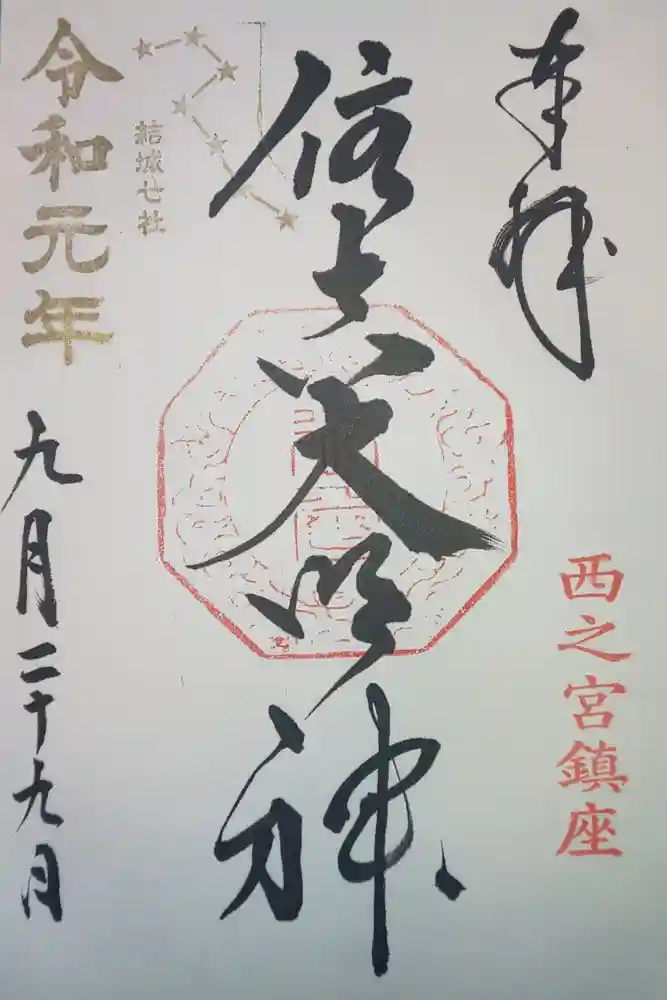 奉拝
西之宮鎮座
大明神
結城七社
令和元年
九月二十九日